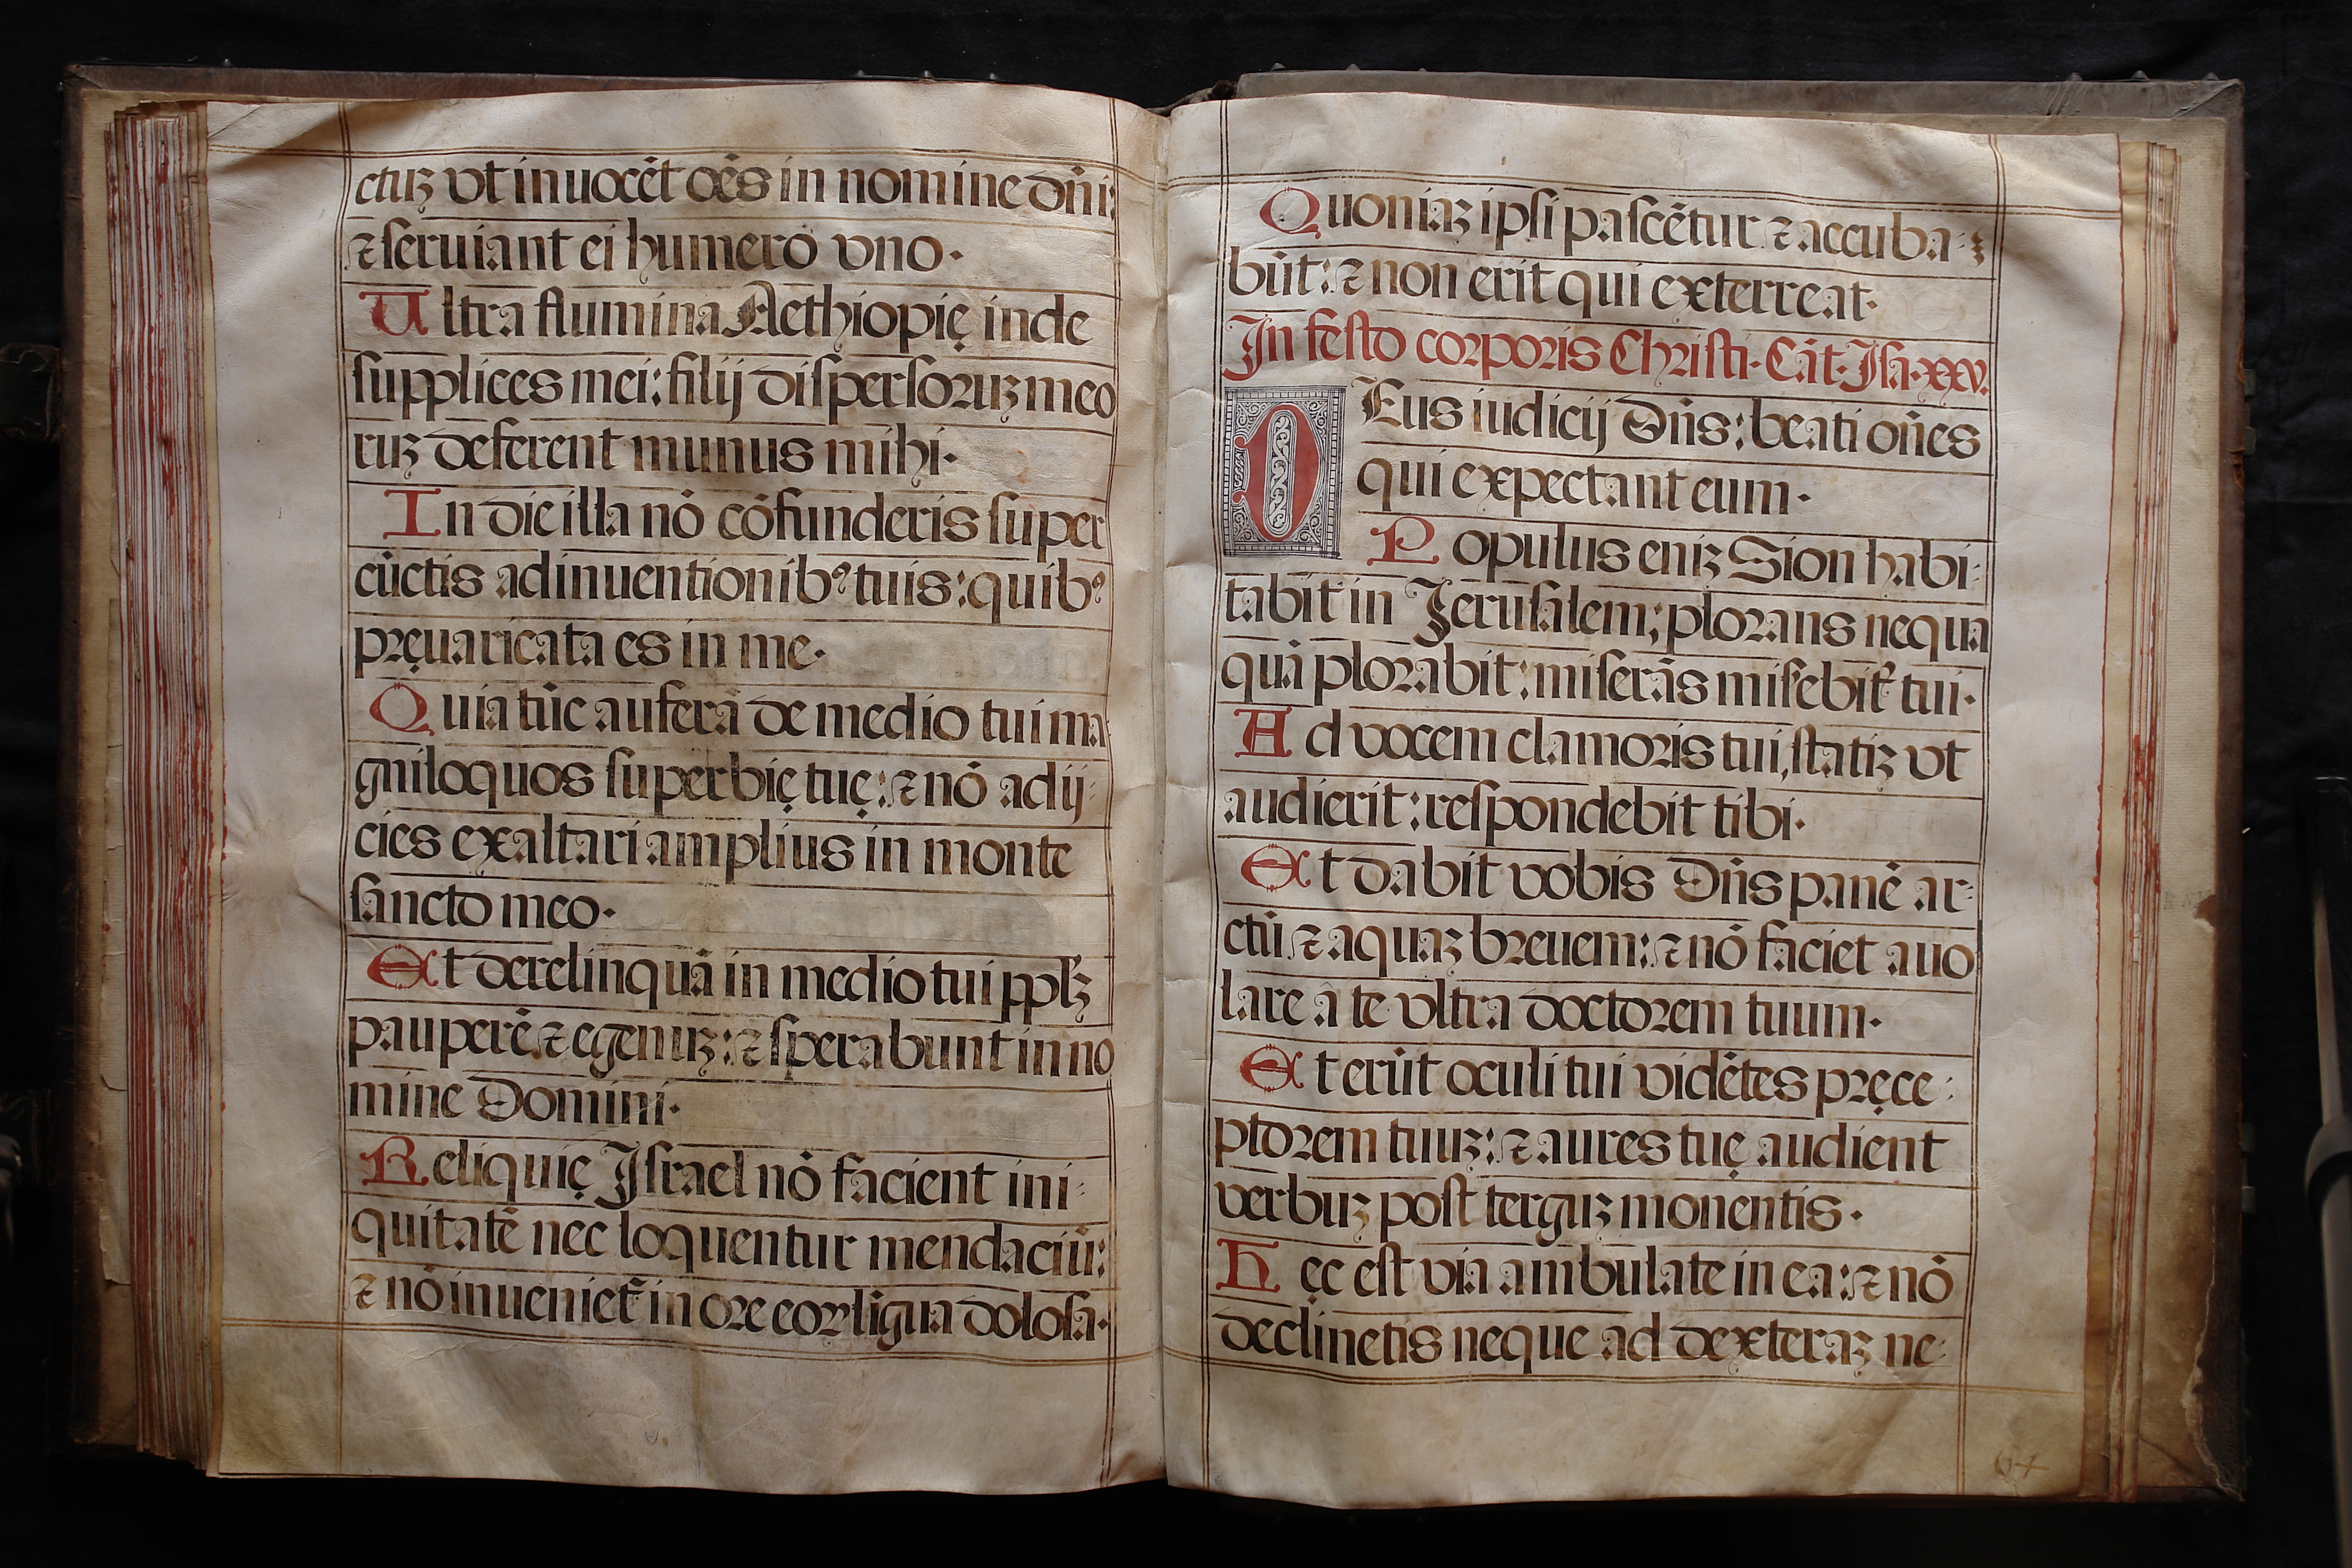 ctuꝫ vt inuocēt oēs in nomine dn̄i:
⁊ seruiant ei humero vno.
Ultra flumina Aethiopię inde
supplices mei: filij dispersoruꝫ meo
ruꝫ deferent munus mihi.
In die illa nō cōfunderis super
cūctis adinuentionibꝰ tuis: quibꝰ
pręuaricata es in me.
Quia tūc auferā de medio tui ma
gniloquos superbię tuę: ⁊ nō adij-
cies exaltari amplius in monte
sancto meo.
Et derelinquā in medio tui ppl̄ꝫ
pauperē ⁊ egenuꝫ: ⁊ sperabunt in no
mine Domini.
Reliquię Israel nō facient ini-
quitatē nec loquentur mendaciū:
⁊ nō inueniet᷑ in ore eoꝝ ligua dolosa.
Quoniaꝫ ipsi pascētur ⁊ accuba-
būt: ⁊ non erit qui exterreat.
In festo corporis Christi. Cāt. Isa. xxv.
DEus iudicij Dn̄s: beati on̄es
qui expectant eum.
Populus eniꝫ Sion habi-
tabit in Jerusalem; plorans nequa
quā plorabit: miserās misebit᷑ tui.
Ad vocem clamoris tui, statiꝫ vt
audierit: respondebit tibi.
Et dabit vobis Dn̄s panē ar-
ctū ⁊ aquaꝫ breuem: ⁊ nō faciet auo
lare â te vltra doctorem tuum.
Et erūt oculi tui vidētes pręce-
ptorem tuuꝫ: ⁊ aures tuę audient
verbuꝫ post terguꝫ monentis.
Hęc est via ambulate in ea: ⁊ nō
declinetis neque ad dexteraꝫ ne-
64